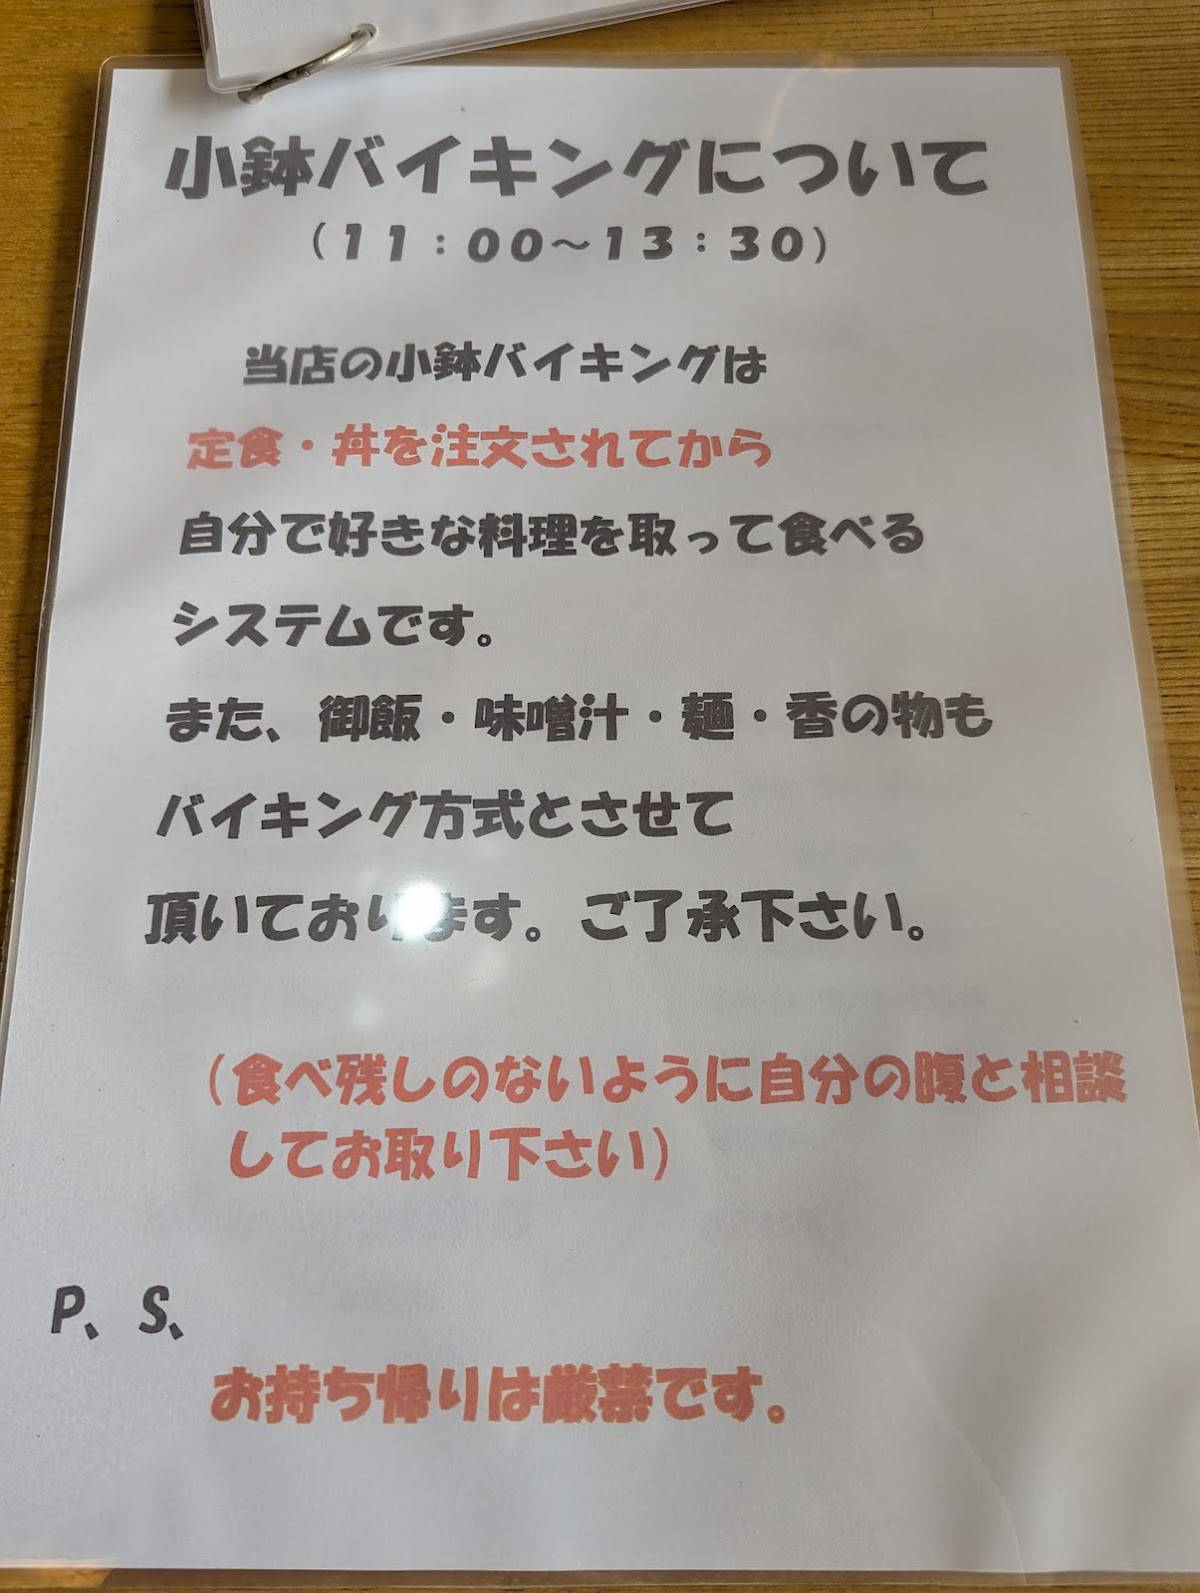 小鉢バイキングについて
（11：00～13：30）
当店の小鉢バイキングは
定食・丼を注文されてから
自分で好きな料理を取って食べる
システムです。
また、御飯・味噌汁・麺・香の物も
バイキング方式とさせて
頂いております。ご了承下さい。
（食べ残しのないように自分の腹と相談
してお取り下さい）
P、S、
お持ち帰りは厳禁です。